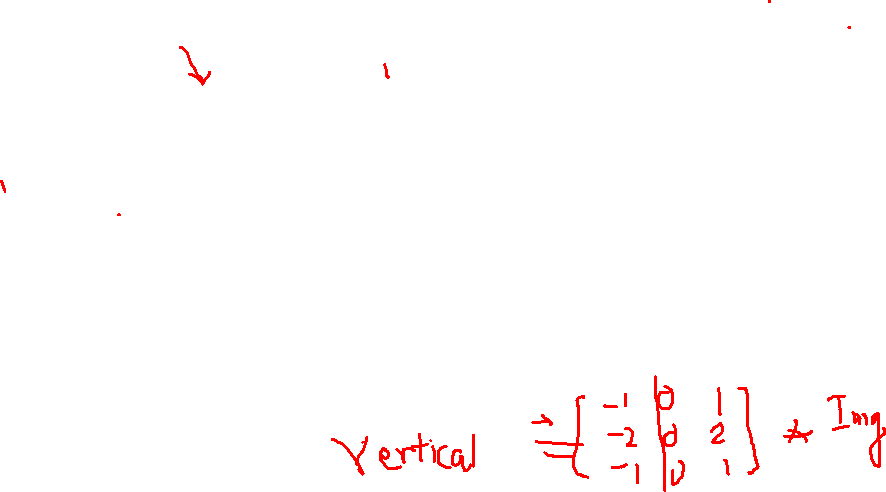 Vertical → = [ -1 0 1
-2 0 2
-1 0 1 ] * Img